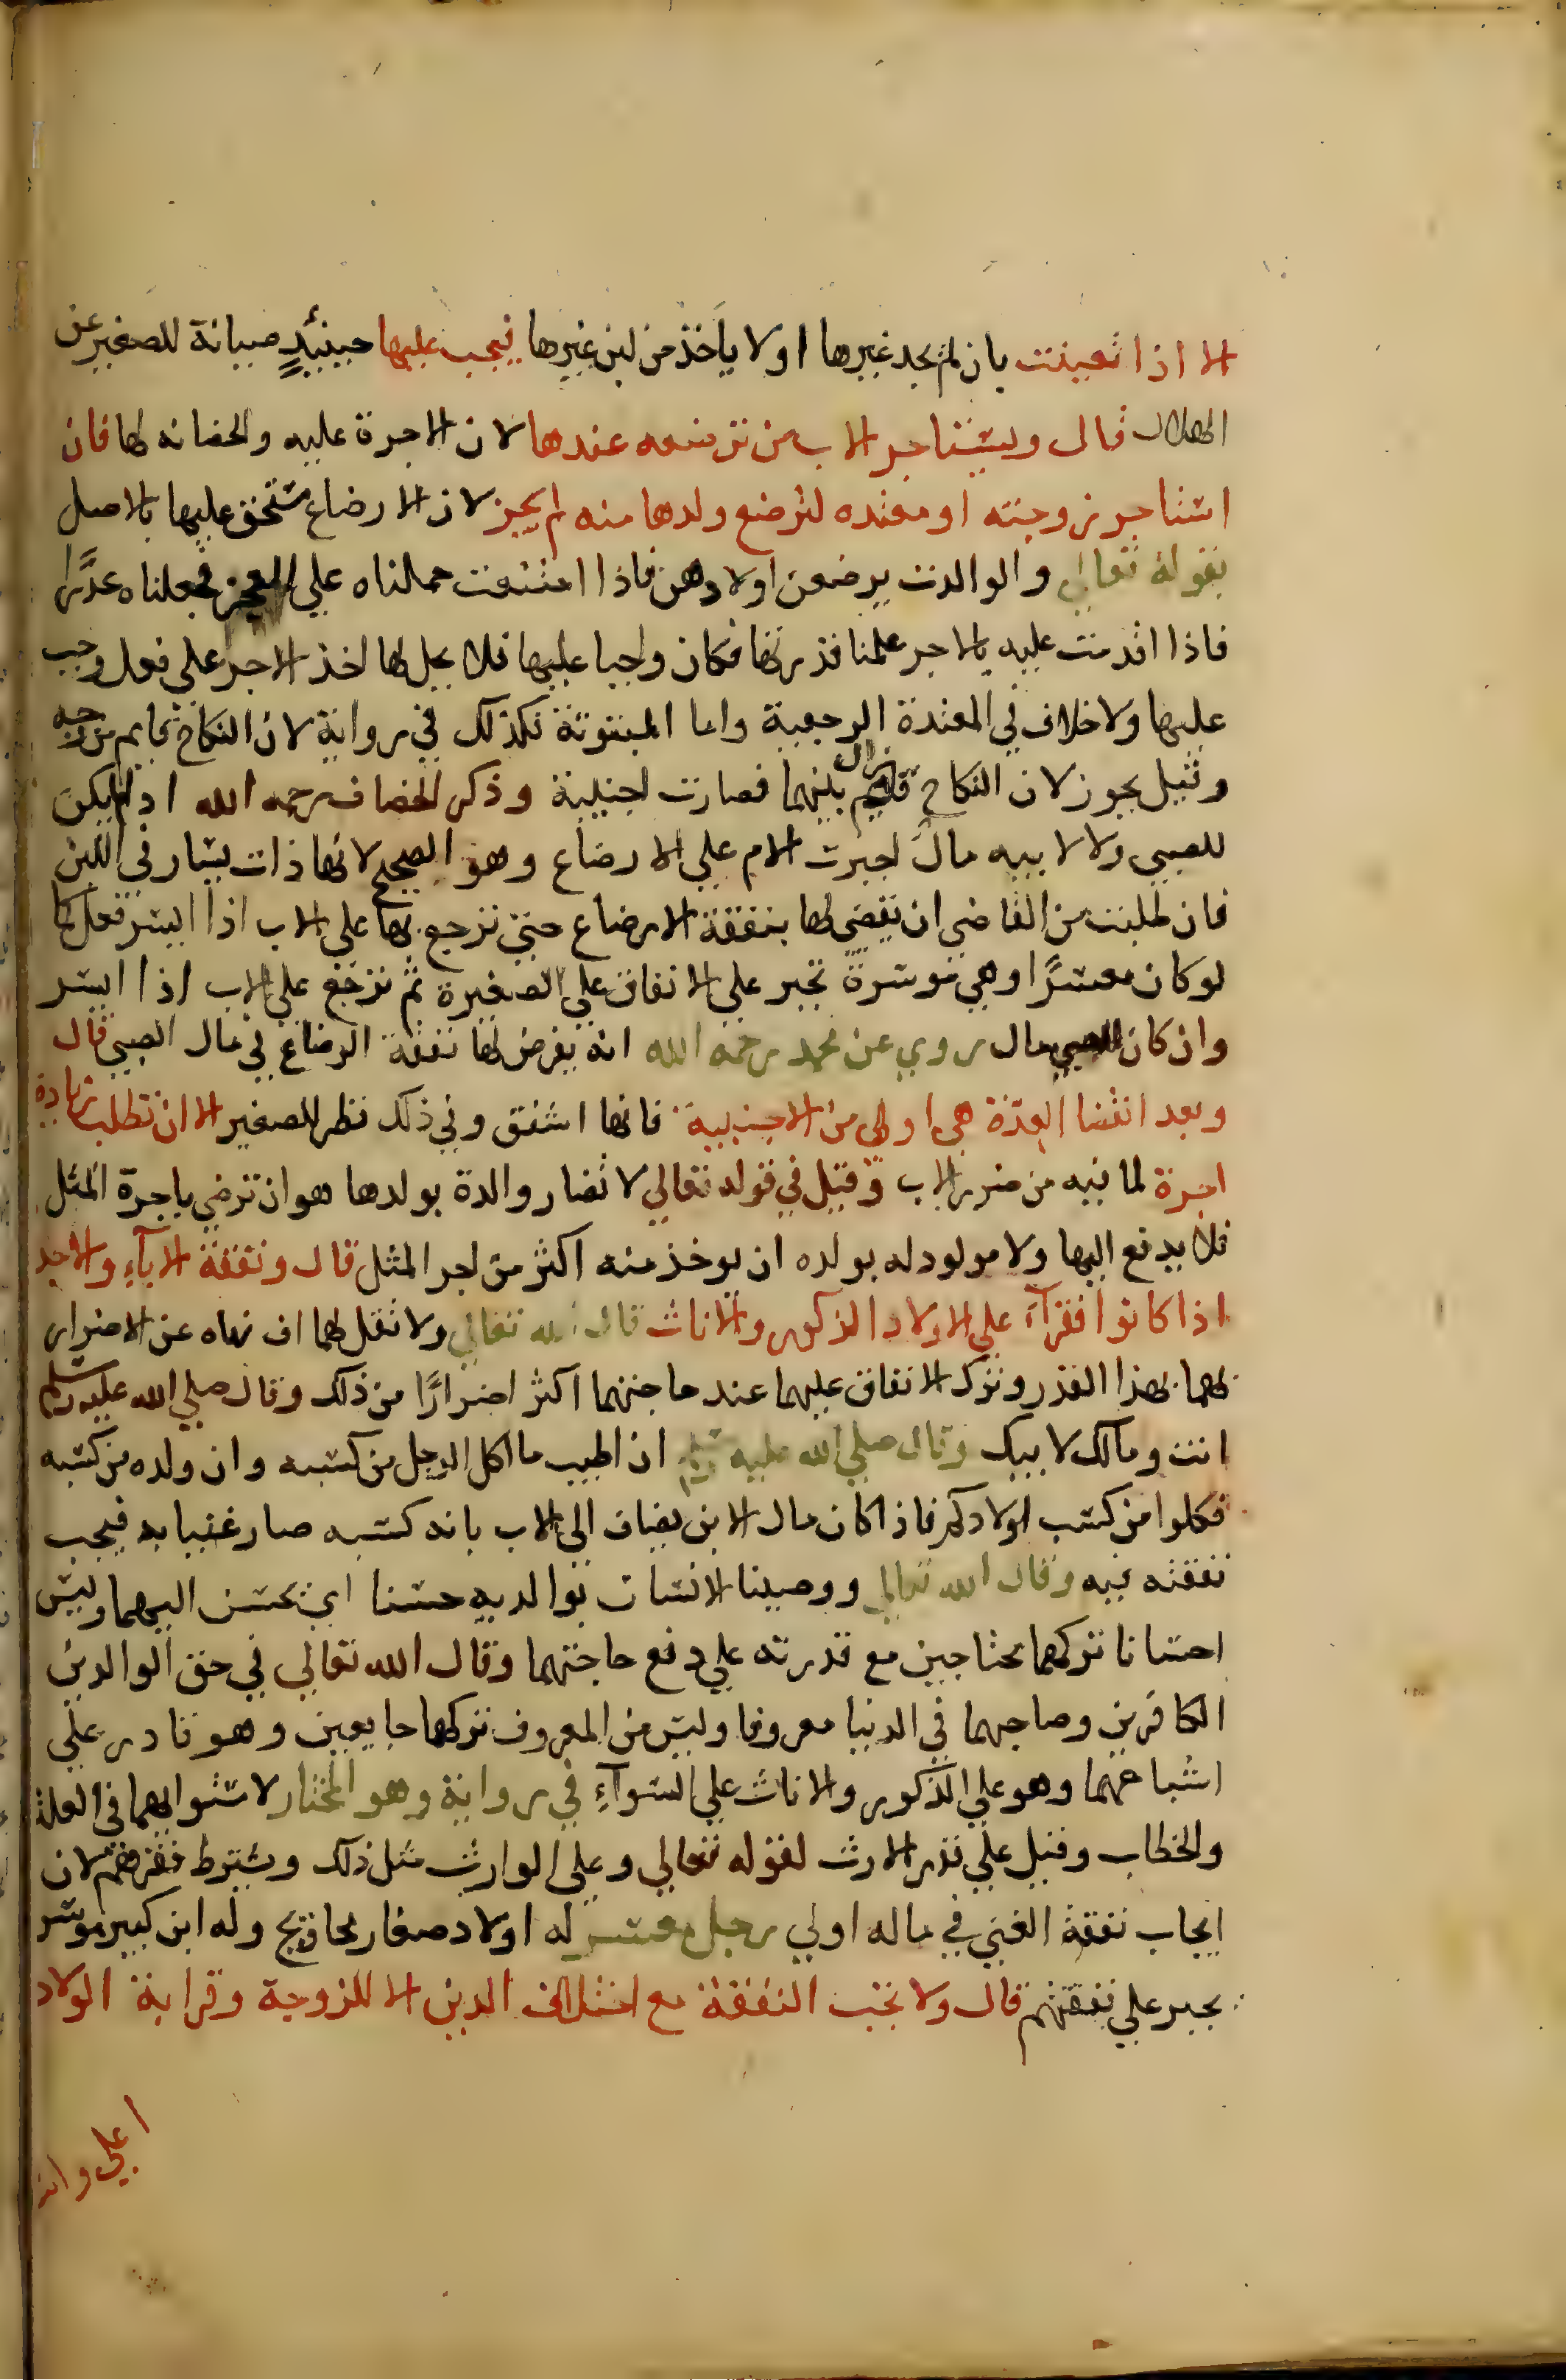 الا اذا تعينت بان لم تجد غيرها او لا ياخذ من لبن غيرها فيجب عليها حينئذٍ صيانة للصغير عن
الهلاك قال ويستاجر الاب من ترضعه عندها لان الاجرة عليه والحضانه لها فان
استاجر زوجته او معتدته لترضع ولدها منه لم يجز لان الارضاع مستحق عليها بالاصل
بقوله تعالى والوالدت يرضعن اولادهن فاذا امتنعت حملناه على العجز فجعلناه عذرا
فاذا اقدمت عليه بالاجر علمنا قدرتها فكان واجبا عليها فلا يحل لها اخذ الاجر على فعل وجب
عليها ولا خلاف في المعتدة الرجعية واما المبتوتة فكذلك في رواية لان النكاح قايم من وجه
وقيل يجوز لان النكاح زال بينهما فصارت اجنبية وذكر الخصاف رحمه الله اذا لم يكن
للصبي ولا لابيه مالٌ اجبرت الام على الارضاع وهو الصحيح لانها ذات يسار في اللبن
فان طلبت من القاضي ان يقضي لها بنفقة الارضاع حتى ترجع بها على الاب اذا ايسر فعل كما
لو كان معسرًا وهي موسرة تجبر على الانفاق على الصغيرة ثم ترجع على الاب اذا ايسر
وان كان للصبي مال روي عن محمد رحمه الله انه يفرض لها نفقة الرضاع في مال الصبي قال
وبعد انقضا العدّة هي اولى من الاجنبية فانها اشفق وفي ذلك نظر للصغير الا ان تطلب زيادة
اجرة لما فيه من ضرر الاب وقيل في قوله تعالي لا تضار والدة بولدها هو ان ترضي باجرة المثل
فلا يدفع اليها ولا مولود له بولده ان يوخذ منه اكثر من اجر المثل قال ونفقة الاباء والاجد
اذا كانوا فقرآء على الاولاد الذكور والاناث قال الله تعالي ولا تقل لهما اف نهاه عن الاضرار
بهما بهذا القدر وترك الانفاق عليهما عند حاجتهما اكثر اضرارًا من ذلك وقال صلي الله عليه وسلم
انت ومالك لابيك وقال صلي الله عليه وسلم ان اطيب ما اكل الرجل من كسبه وان ولده من كسبه
فكلوا من كسب اولادكم فاذا كان مال الابن يضاف الي الاب بانه كسبه صار غنيا به فيجب
نفقته فيه وقال الله تعالي ووصينا الانسان بوالديه حسنا اي يحسن اليهما وليس
احسانا تركهما محتاجين مع قدرته علي دفع حاجتهما وقال الله تعالي في حق الوالدين
الكافرين وصاحبهما في الدنيا معروفا وليس من المعروف تركهما جايعين وهو قادر علي
اشباعهما وهو علي الذكور والاناث علي السوآءِ في رواية وهو المختار لاستوايهما في العلة
والخطاب وقيل علي قدر الارث لقوله تعالي وعلى الوارث مثل ذلك ويشترط فقرهم لان
ايجاب نفقة الغني في ماله اولي رجل معسر له اولاد صغار محاويج وله ابن كبير موسر
يجبر علي نفقتهم قال ولا تجب النفقة مع اختلاف الدين الا للزوجة وقرابة الولاد